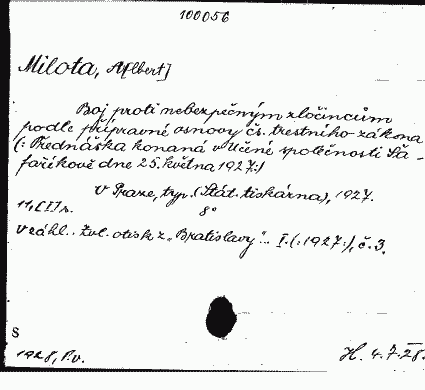 100056
Milota, A[lbert]
Boj proti nebezpečným zločincům
podle přípravné osnovy čs. trestního zákona
(: Přednáška konaná v Učené společnosti Ša-
faříkově dne 25. května 1927:)
V Praze, typ. (Stát. tiskárna), 1927.
8°
V záhl.: Zvl. otisk z „Bratislavy"... I. (:1927:), č. 3.
S
1928, P.v.
H. 4.7.28.